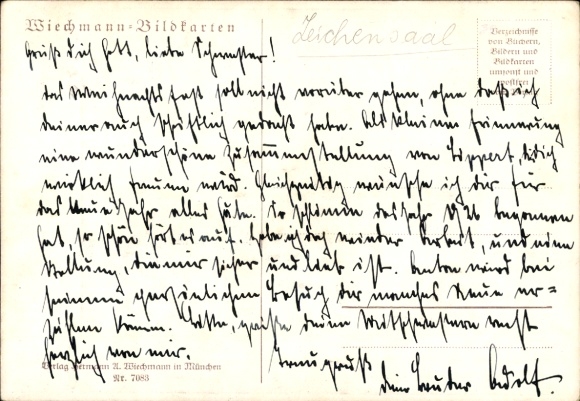 Wiechmann-Bildkarten
Zeichensaal
Verzeichnisse
von Büchern,
Bildern und
Bildkarten
umsonst und
postfrei
Grüß dich Gott, liebe Schwester!
Das Weihnachtsfest soll nicht vorüber gehen, ohne daß ich
deiner auch schriftlich gedacht habe. Als kleine Erinnerung
eine wunderschöne Zusammenstellung von Lippert, die dich
wirklich freuen wird. Gleichzeitig wünsche ich dir für
das Neue Jahr alles Gute. So schlimm das Jahr 1926 begonnen
hat, so schön hört es auf. Habe ich doch wieder Arbeit, und eine
Stellung, die mir sicher und lieb ist. Anton wird bei
seinem persönlichen Besuch dir manches Neue er=
zählen können. Bitte, grüße deine Mitschwestern recht
herzlich von mir.
Treugruß
dein Bruder Adolf.
Verlag Hermann A. Wiechmann in München
Nr. 7083